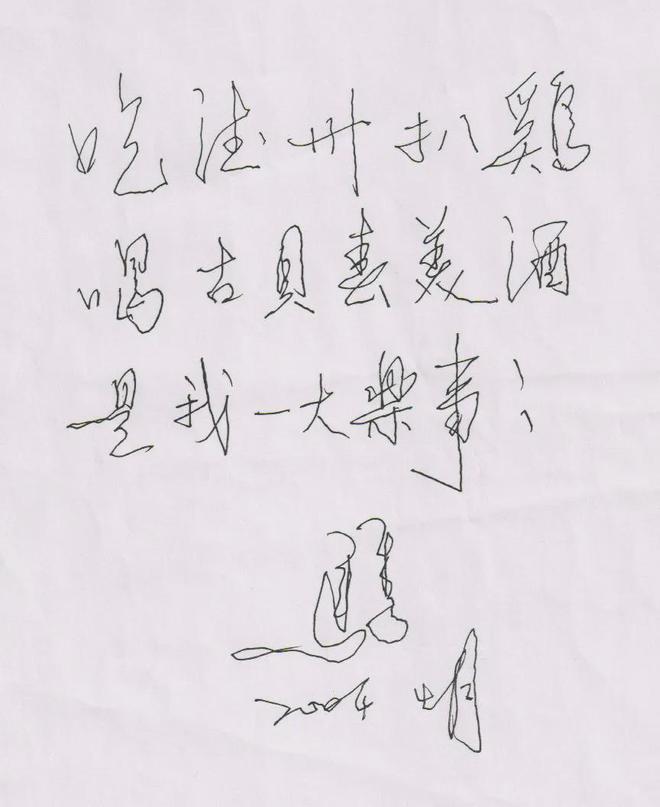 吃德州扒鷄
喝古貝春美酒
是我一大樂事！
2004 4月